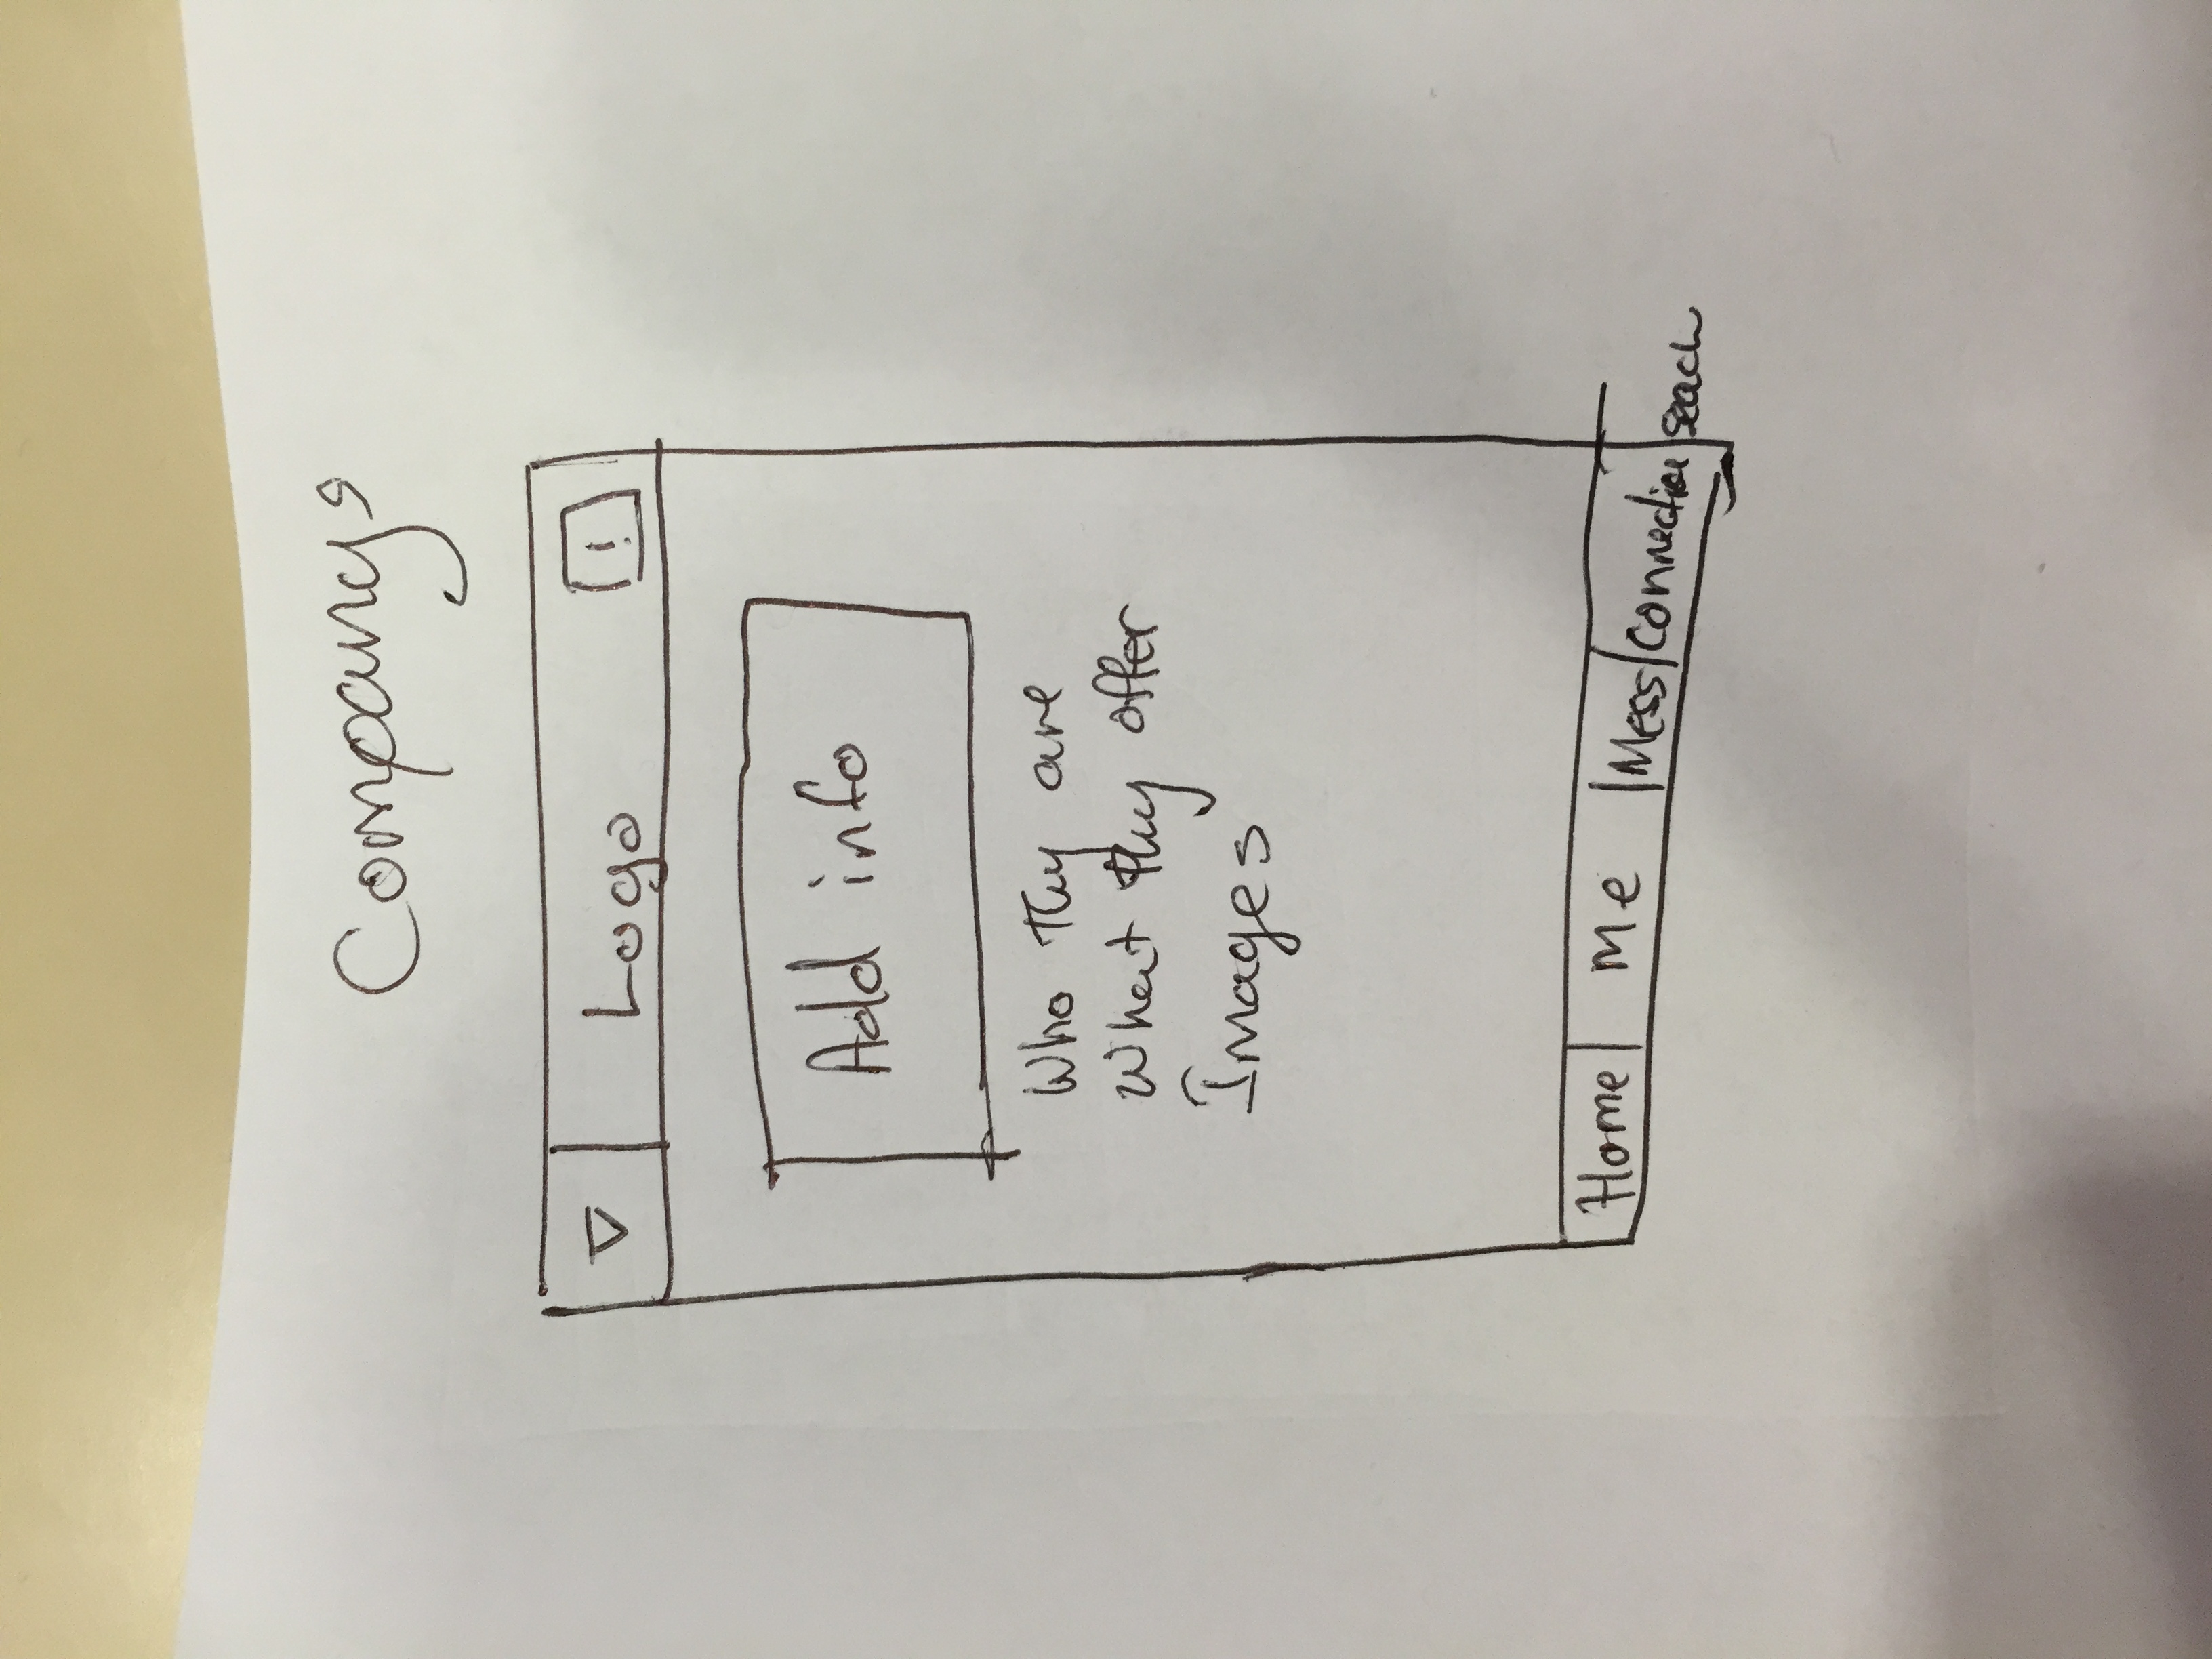 Companys
Logo !
Add info
Who They are
What they offer
Images
Home Me Mess Connection seach